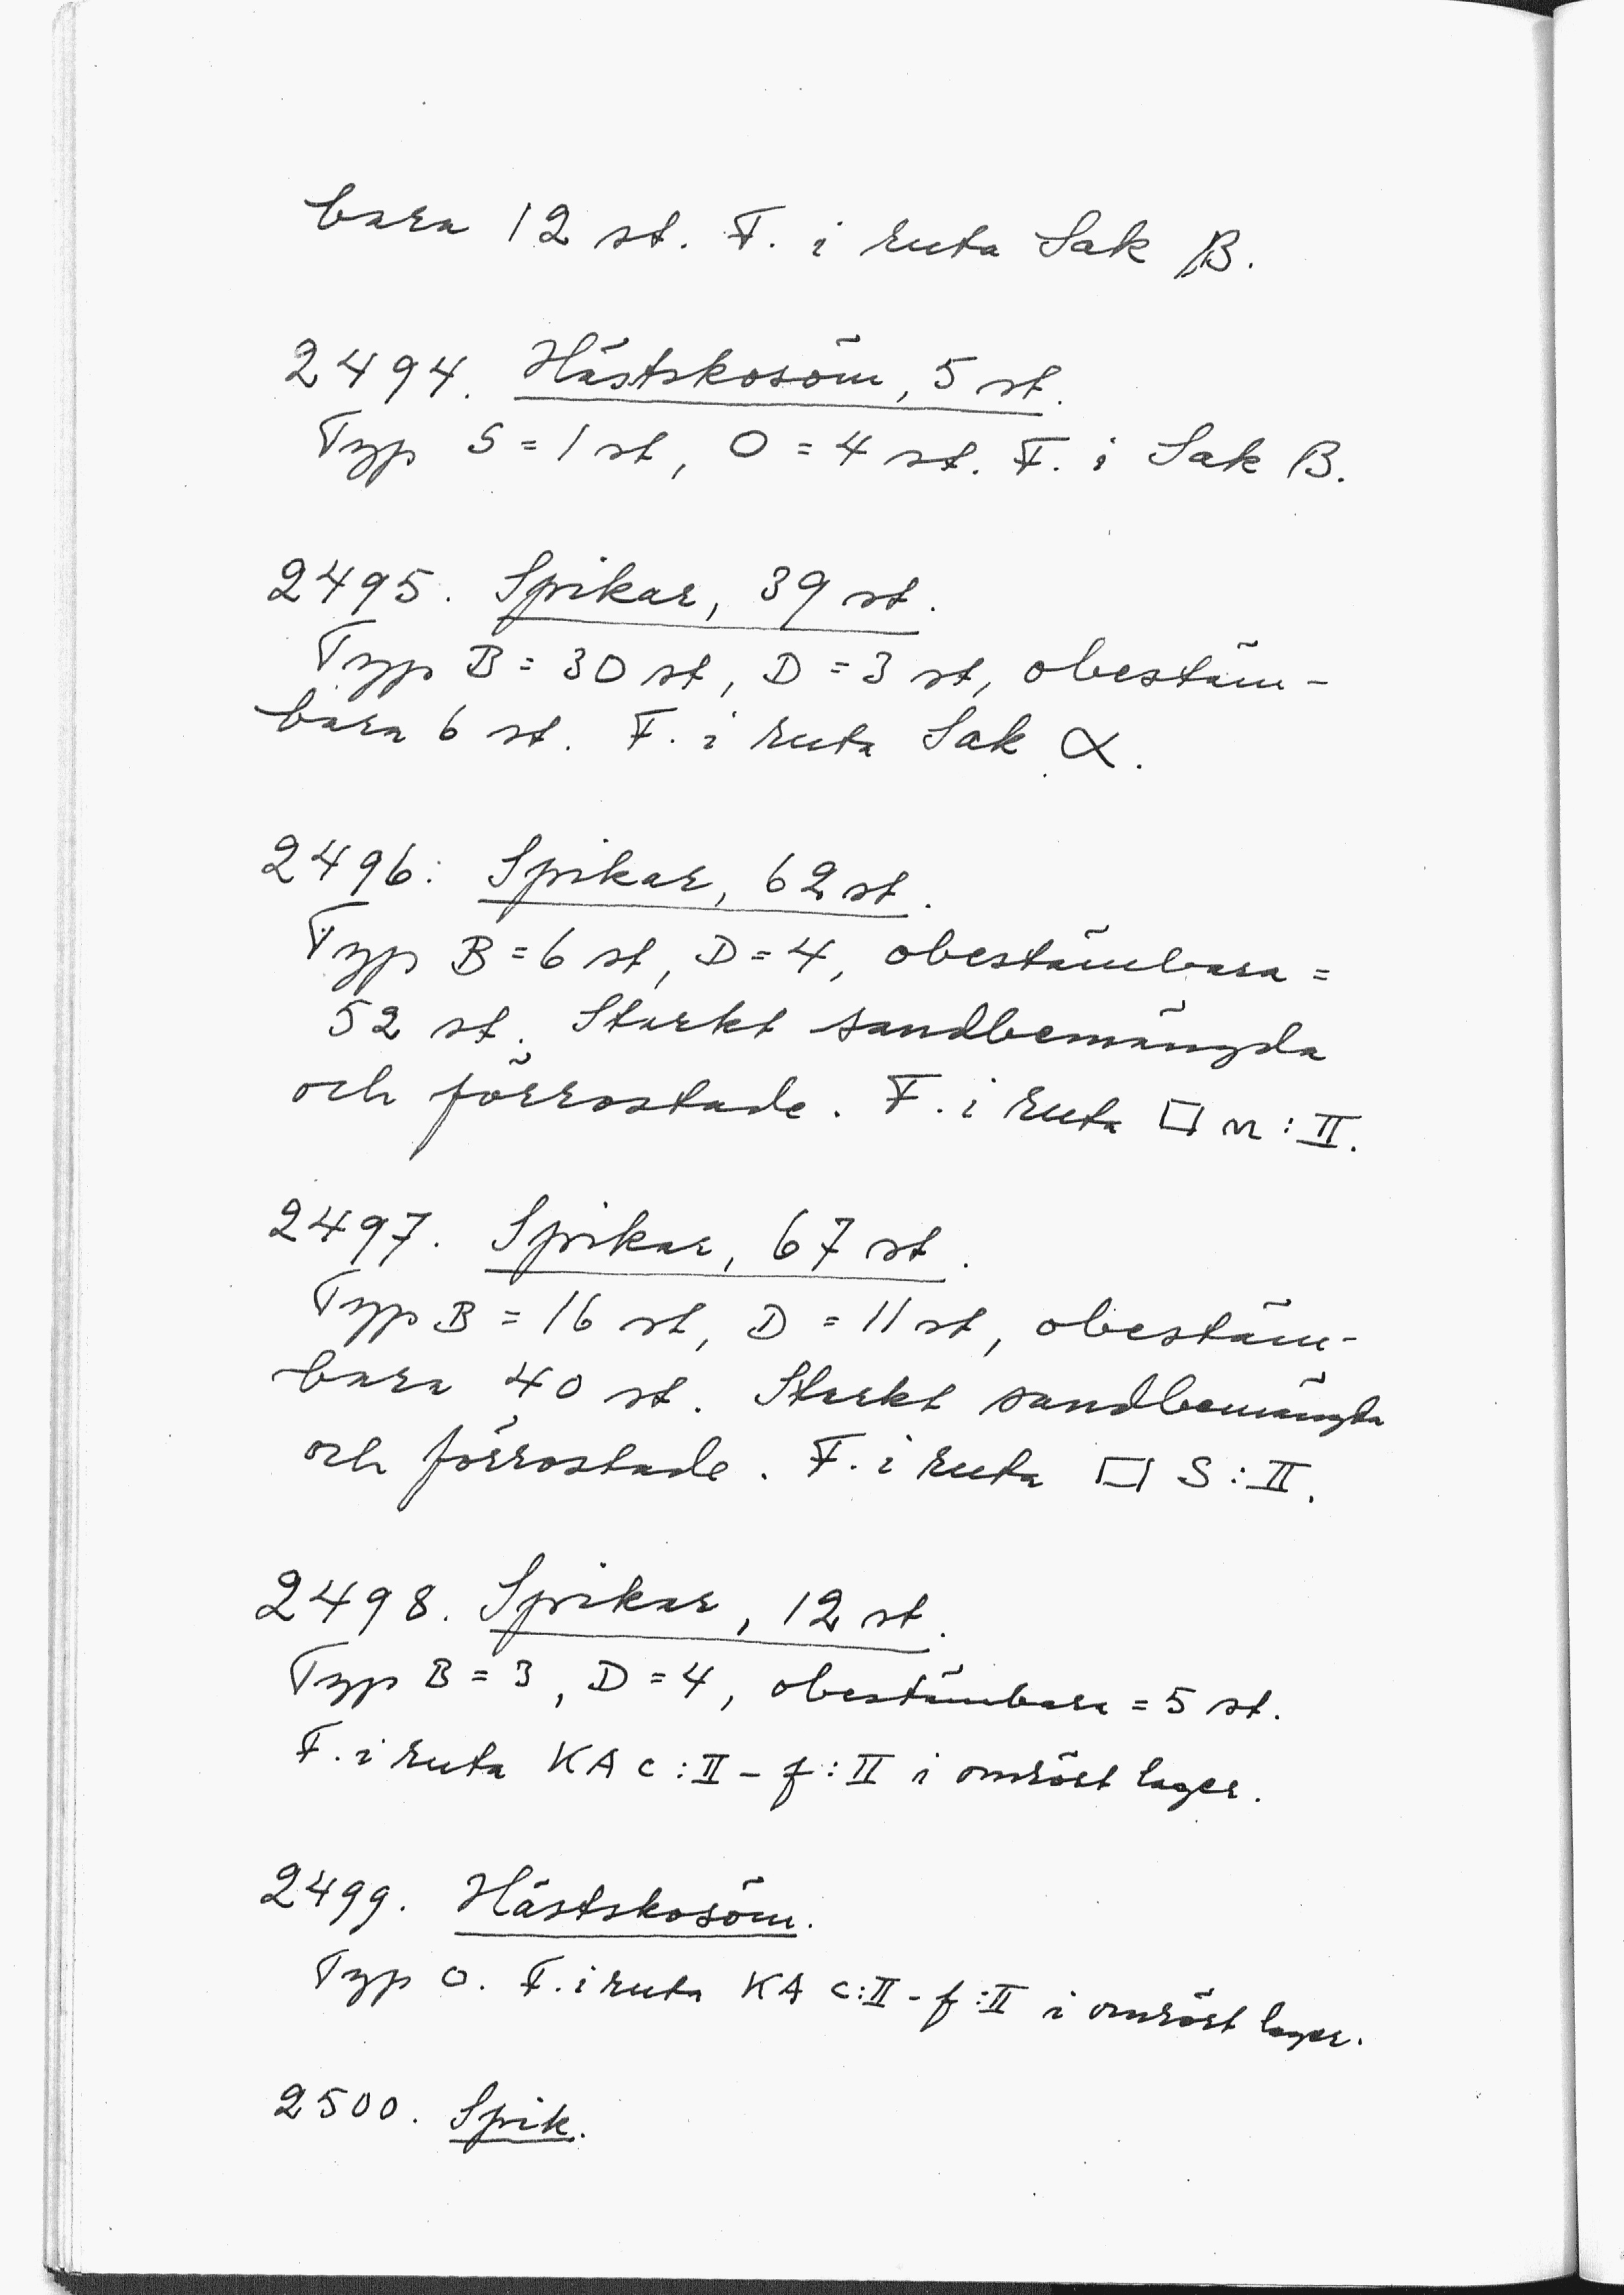 bara 12 st. F. i ruta Sak B.
2494. Hästskosöm, 5 st.
Typ S = 1 st, O = 4 st. F. i Sak B.
2495. Spikar, 39 st.
Typ B = 30 st, D = 3 st, obestäm-
bara 6 st. F. i ruta Sak α.
2496. Spikar, 62 st.
Typ B = 6 st, D = 4, obestämbara =
52 st. Starkt sandbemängda
och förrostade. F. i ruta □ n : II.
2497. Spikar, 67 st.
Typ B = 16 st, D = 11 st, obestäm-
bara 40 st. Starkt sandbemängda
och förrostade. F. i ruta □ S : II.
2498. Spikar, 12 st.
Typ B = 3, D = 4, obestämbara = 5 st.
F. i ruta KA c : II - f : II i omrört lager.
2499. Hästskosöm.
Typ O. F. i ruta KA c : II - f : II i omrört lager.
2500. Spik.